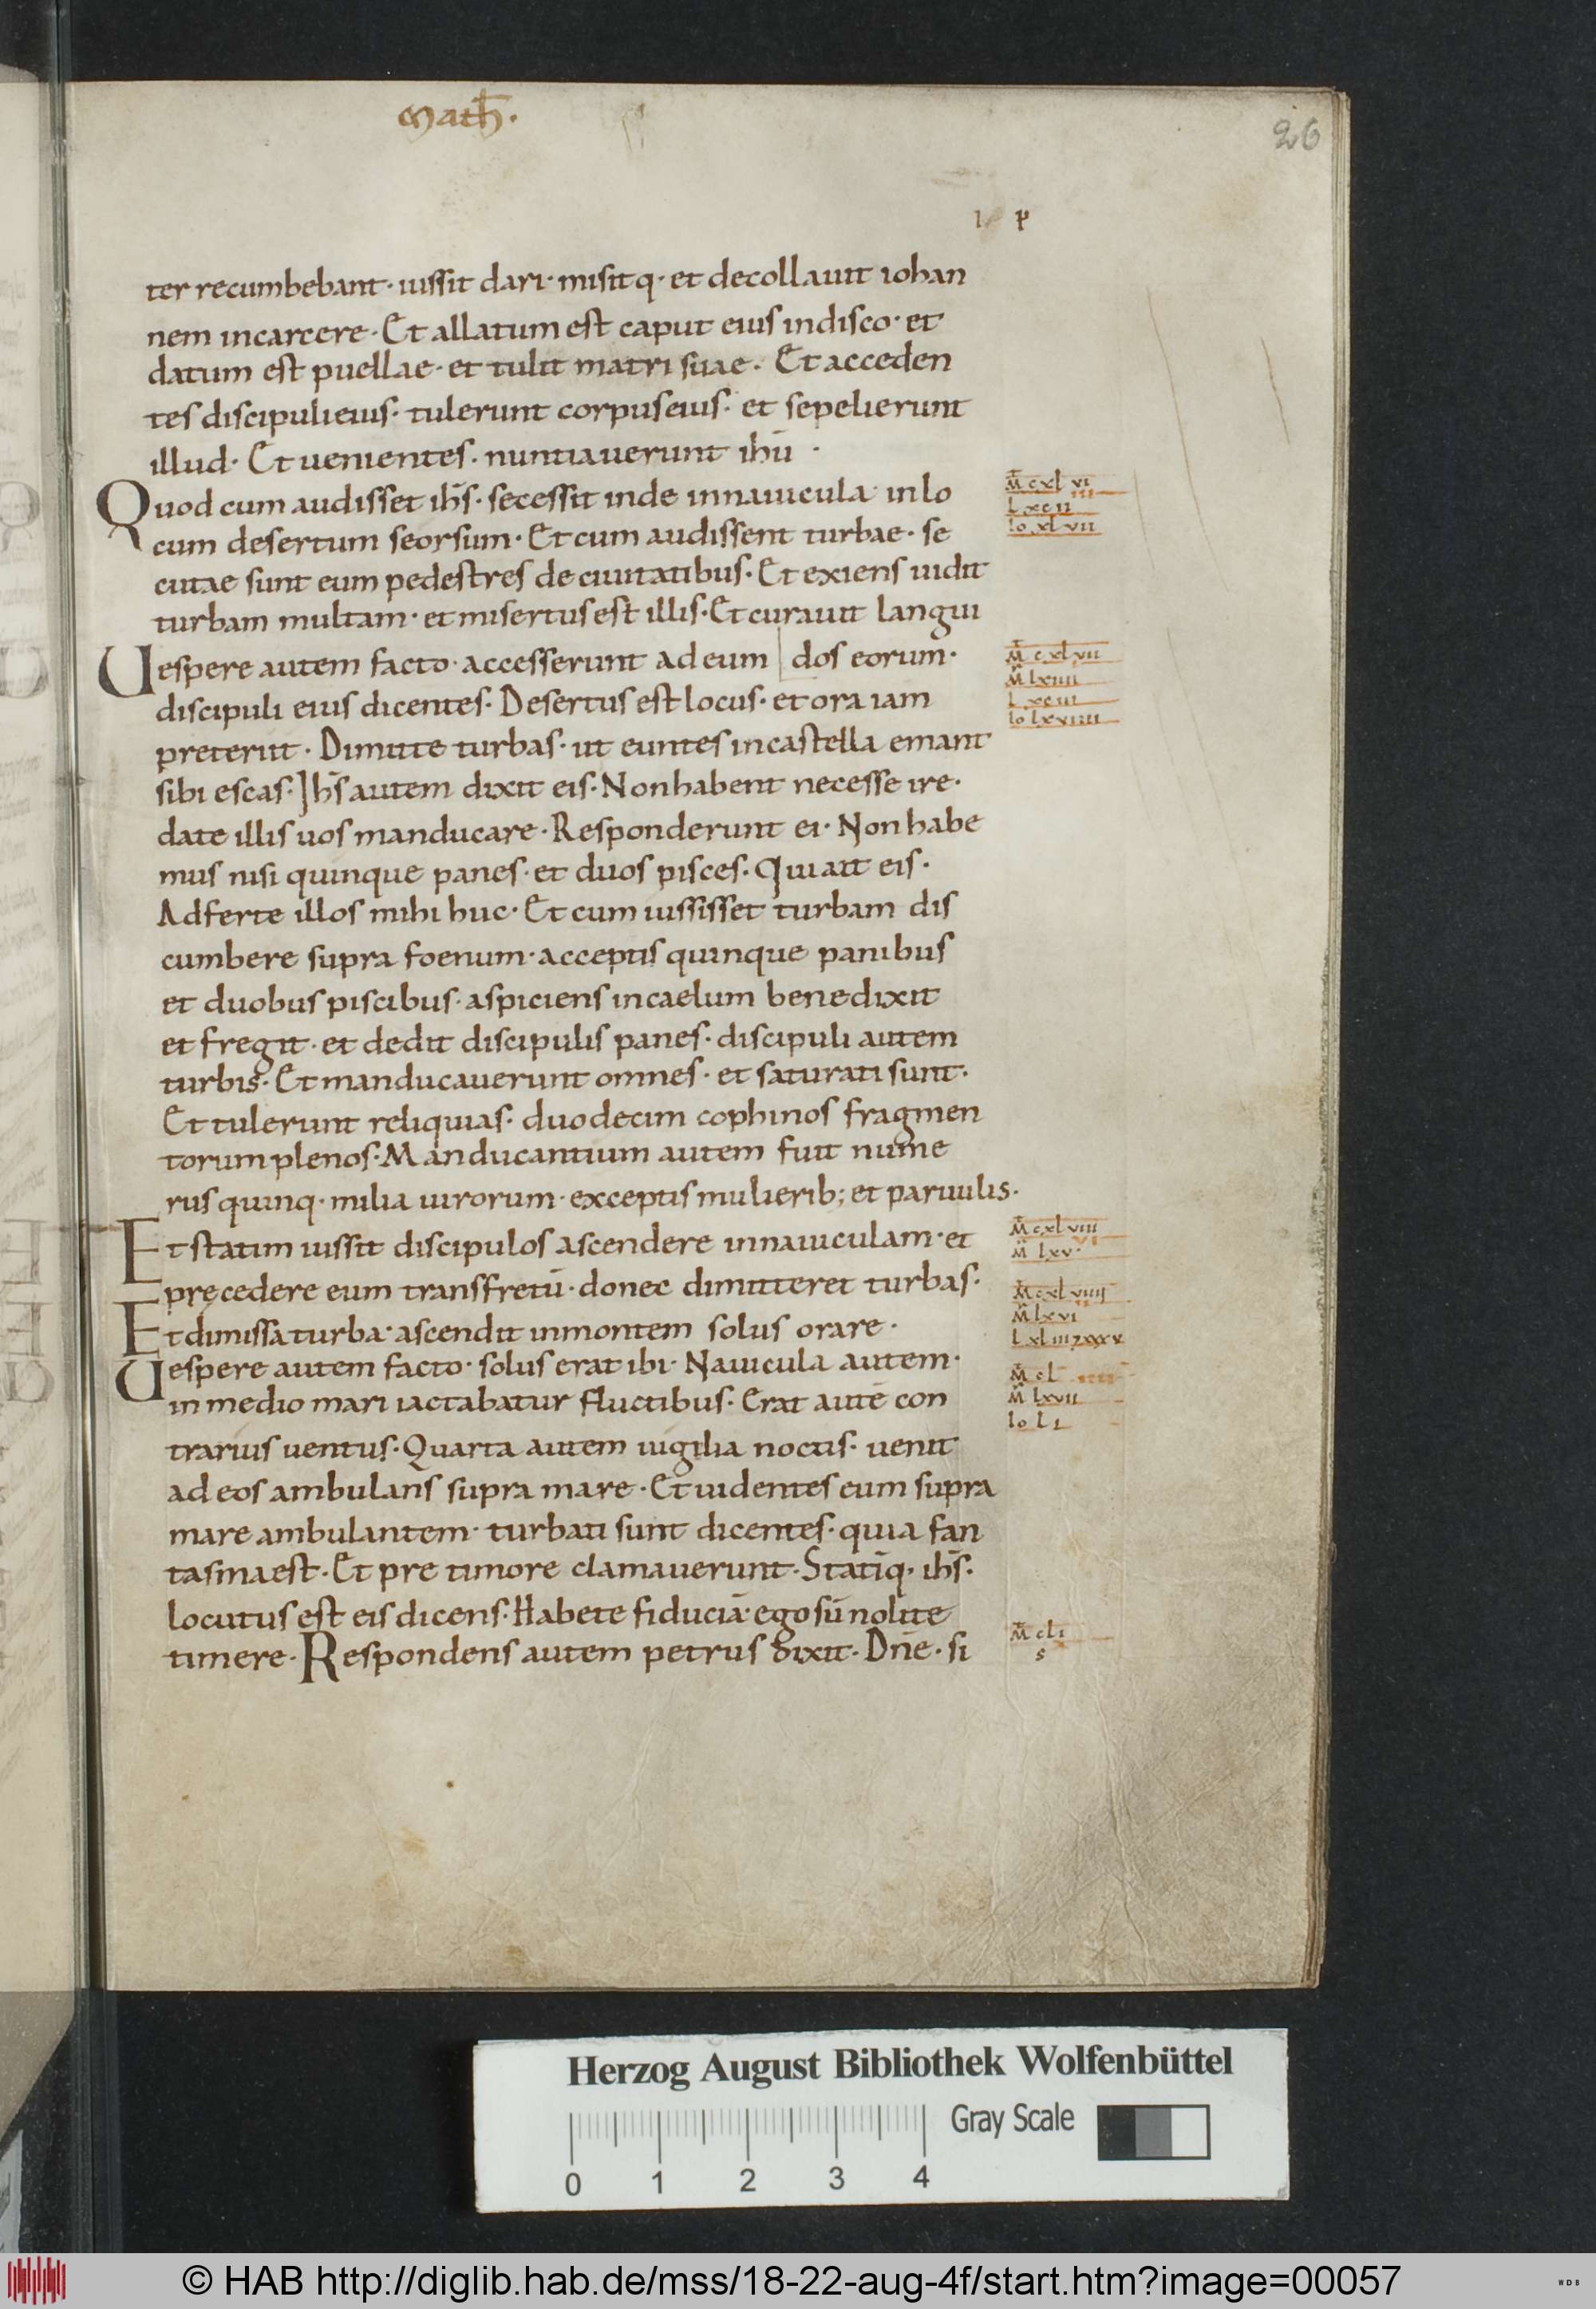 Math̄.
26
ter recumbebant · iussit dari · misitq · et decollauit iohan
nem in carcere · Et allatum est caput eius in disco · et
datum est puellae · et tulit matri suae · Et acceden
tes discipuli eius · tulerunt corpus eius · et sepelierunt
illud · Et uenientes · nuntiauerunt ihū ·
Quod cum audisset ihs̄ · secessit inde in nauicula in lo
cum desertum seorsum · Et cum audissent turbae · se
cutae sunt eum pedestres de ciuitatibus · Et exiens uidit
turbam multam · et misertus est illis · Et curauit langui
Uespere autem facto · accesserunt ad eum | dos eorum ·
discipuli eius dicentes · Desertus est locus · et ora iam
preteriit · Dimitte turbas · ut euntes in castella emant
sibi escas · Ihs̄ autem dixit eis · Non habent necesse ire ·
date illis uos manducare · Responderunt ei · Non habe
mus nisi quinque panes · et duos pisces · Qui ait eis ·
Adferte illos mihi huc · Et cum iussisset turbam dis
cumbere supra foenum · acceptis quinque panibus
et duobus piscibus · aspiciens in caelum benedixit
et fregit · et dedit discipulis panes · discipuli autem
turbis · Et manducauerunt omnes · et saturati sunt ·
Et tulerunt reliquias · duodecim cophinos fragmen
torum plenos · Manducantium autem fuit nume
rus quinq · milia uirorum · exceptis mulierib; et paruulis ·
Et statim iussit discipulos ascendere in nauiculam · et
pręcedere eum transfretū · donec dimitteret turbas ·
Et dimissa turba · ascendit in montem solus orare ·
Uespere autem facto · solus erat ibi · Nauicula autem ·
in medio mari iactabatur fluctibus · Erat autē con
trarius uentus · Quarta autem uigilia noctis · uenit
ad eos ambulans supra mare · Et uidentes eum supra
mare ambulantem · turbati sunt dicentes · quia fan
tasma est · Et pre timore clamauerunt · Statīq · ihs̄ ·
locutus est eis dicens · Habete fiduciā · ego sū nolite
timere · Respondens autem petrus dixit · Dn̄e · si
M̄ cxlvi
L xcii
Io xlvii
M̄ cxlvii
M̄ lxiiii
L xciii
Io lxviiii
M̄ cxlviii
M̄ lxv
M̄ cxlviiii
M̄ lxvi
M̄ cl
M̄ lxvii
Io li
M̄ cli
s
Herzog August Bibliothek Wolfenbüttel
Gray Scale
0 1 2 3 4
© HAB http://diglib.hab.de/mss/18-22-aug-4f/start.htm?image=00057
WDB